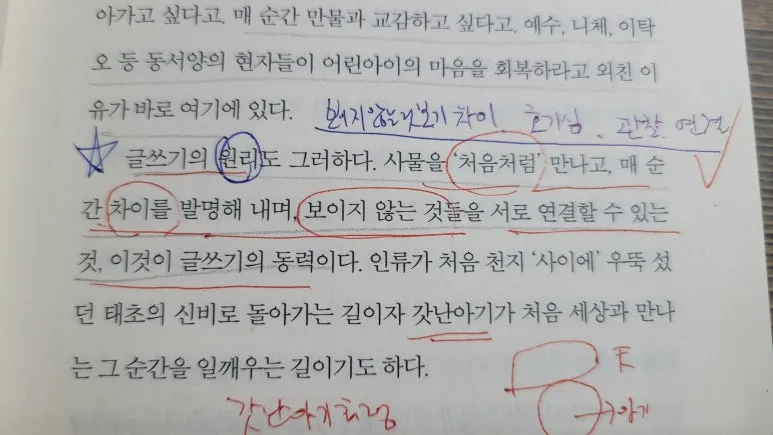 아가고 싶다고. 매 순간 만물과 교감하고 싶다고. 예수, 니체, 이탁
오 등 동서양의 현자들이 어린아이의 마음을 회복하라고 외친 이
유가 바로 여기에 있다.
보이지 않는 것 보기 차이. 호기심. 관찰 연결
글쓰기의 원리도 그러하다. 사물을 ‘처음처럼’ 만나고, 매 순
간 차이를 발명해 내며, 보이지 않는 것들을 서로 연결할 수 있는
것, 이것이 글쓰기의 동력이다. 인류가 처음 천지 ‘사이에’ 우뚝 섰
던 태초의 신비로 돌아가는 길이자 갓난아기가 처음 세상과 만나
는 그 순간을 일깨우는 길이기도 하다.
갓난아기처럼